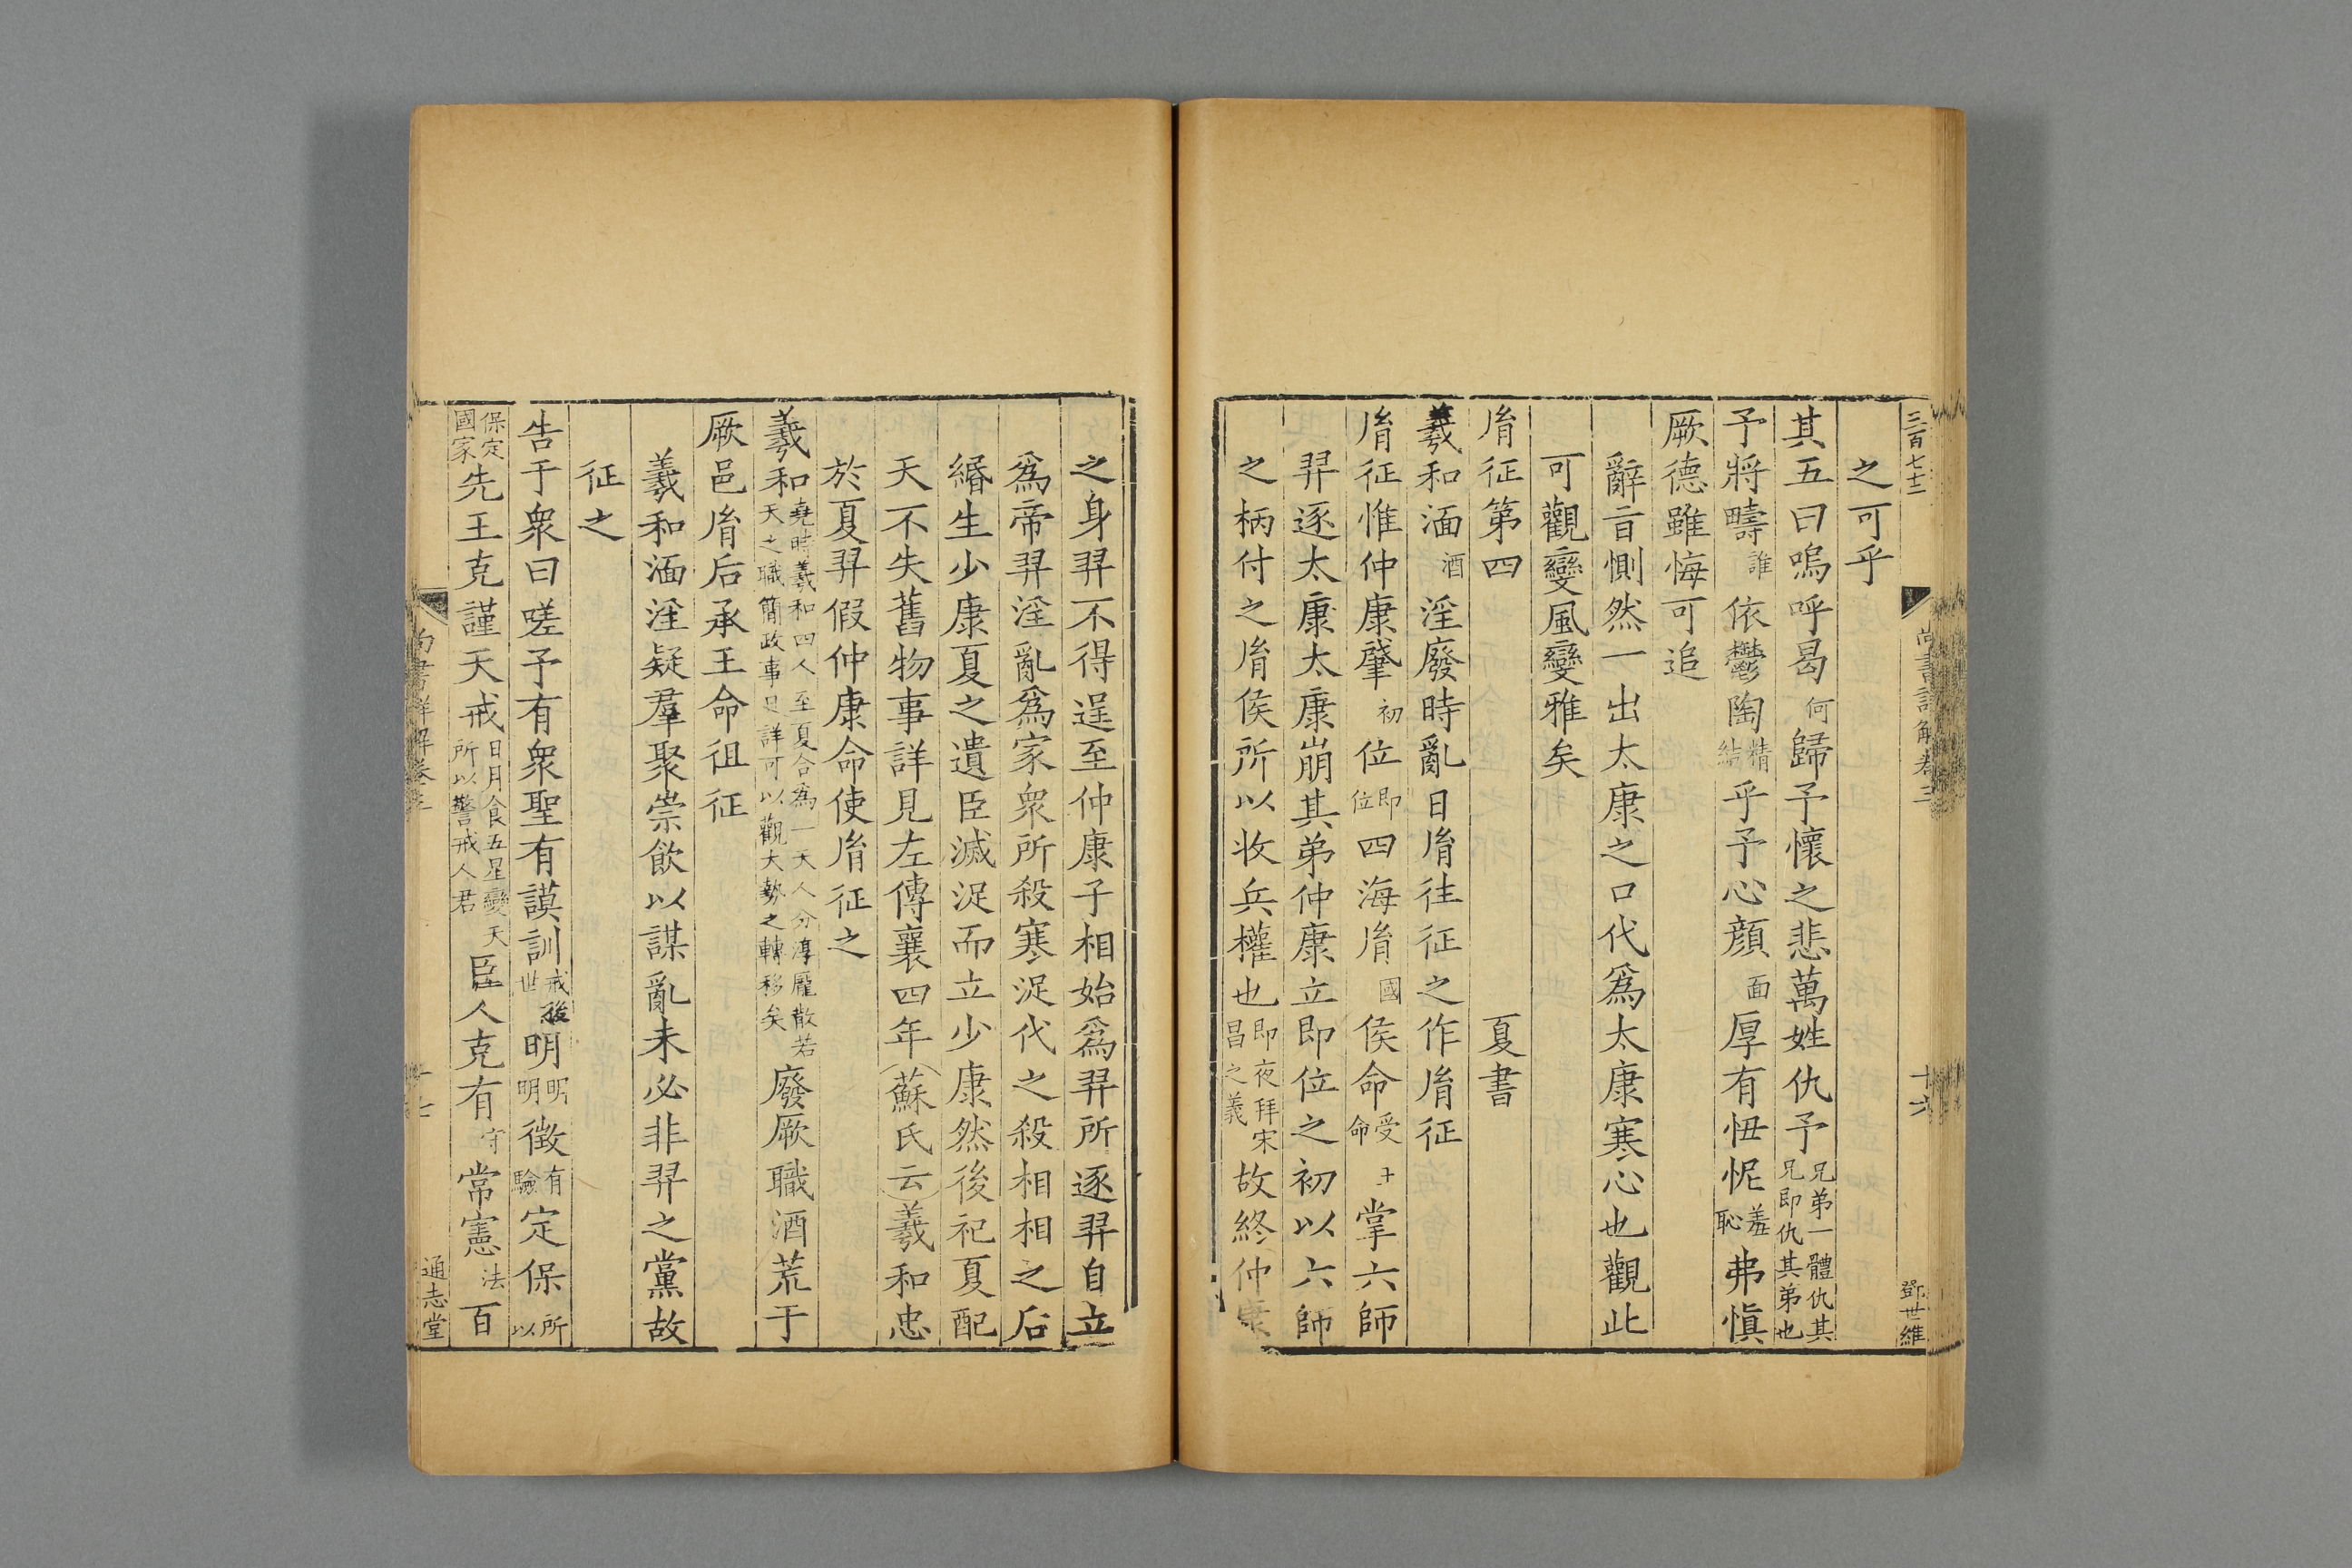 三百七十二
尚書詳解卷三
十六
鄧世維
之可乎
其五曰嗚呼曷何歸予懷之悲萬姓仇予兄弟一體仇其兄即仇其弟也
予將疇誰依鬱陶精結乎予心顏面厚有忸怩羞恥弗愼
厥德雖悔可追
辭旨惻然一出太康之口代爲太康寒心也觀此
可觀變風變雅矣
胤征第四 夏書
羲和湎酒淫廢時亂日胤往征之作胤征
胤征惟仲康肇初位即位四海胤國侯命受命掌六師
羿逐太康太康崩其弟仲康立即位之初以六師
之柄付之胤侯所以收兵權也即夜拜宋昌之義故終仲康
之身羿不得逞至仲康子相始爲羿所逐羿自立
爲帝羿淫亂爲家衆所殺寒浞代之殺相相之后
緡生少康夏之遺臣滅浞而立少康然後祀夏配
天不失舊物事詳見左傳襄四年蘇氏云羲和忠
於夏羿假仲康命使胤征之
羲和堯時羲和四人至夏合爲一天人分淳龐散若天之職簡政事日詳可以觀大勢之轉移矣廢厥職酒荒于
厥邑胤后承王命徂征
羲和湎淫疑羣聚崇飮以謀亂未必非羿之黨故
征之
告于衆曰嗟予有衆聖有謨訓戒後世明明明徵有驗定保所以
保定國家先王克謹天戒日月食五星變天所以警戒人君臣人克有守常憲法百
尚書詳解卷三
十七
通志堂